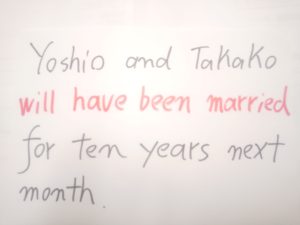 Yoshio and Takako
will have been married
for ten years next
month.